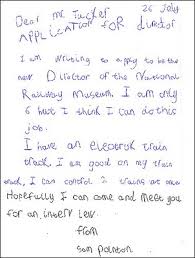 Dear Mr Tucker 26 July
APPLICATION FOR director
I am writing to apply to be the
new Director of the National
Railway Museum. I am only
6 but I think I can do this
job.
I have an electrok train
track. I am good on my train
track. I can control 2 trains at once
Hopefully I can come and meet you
for an interv lew.
from
Sam Pointon